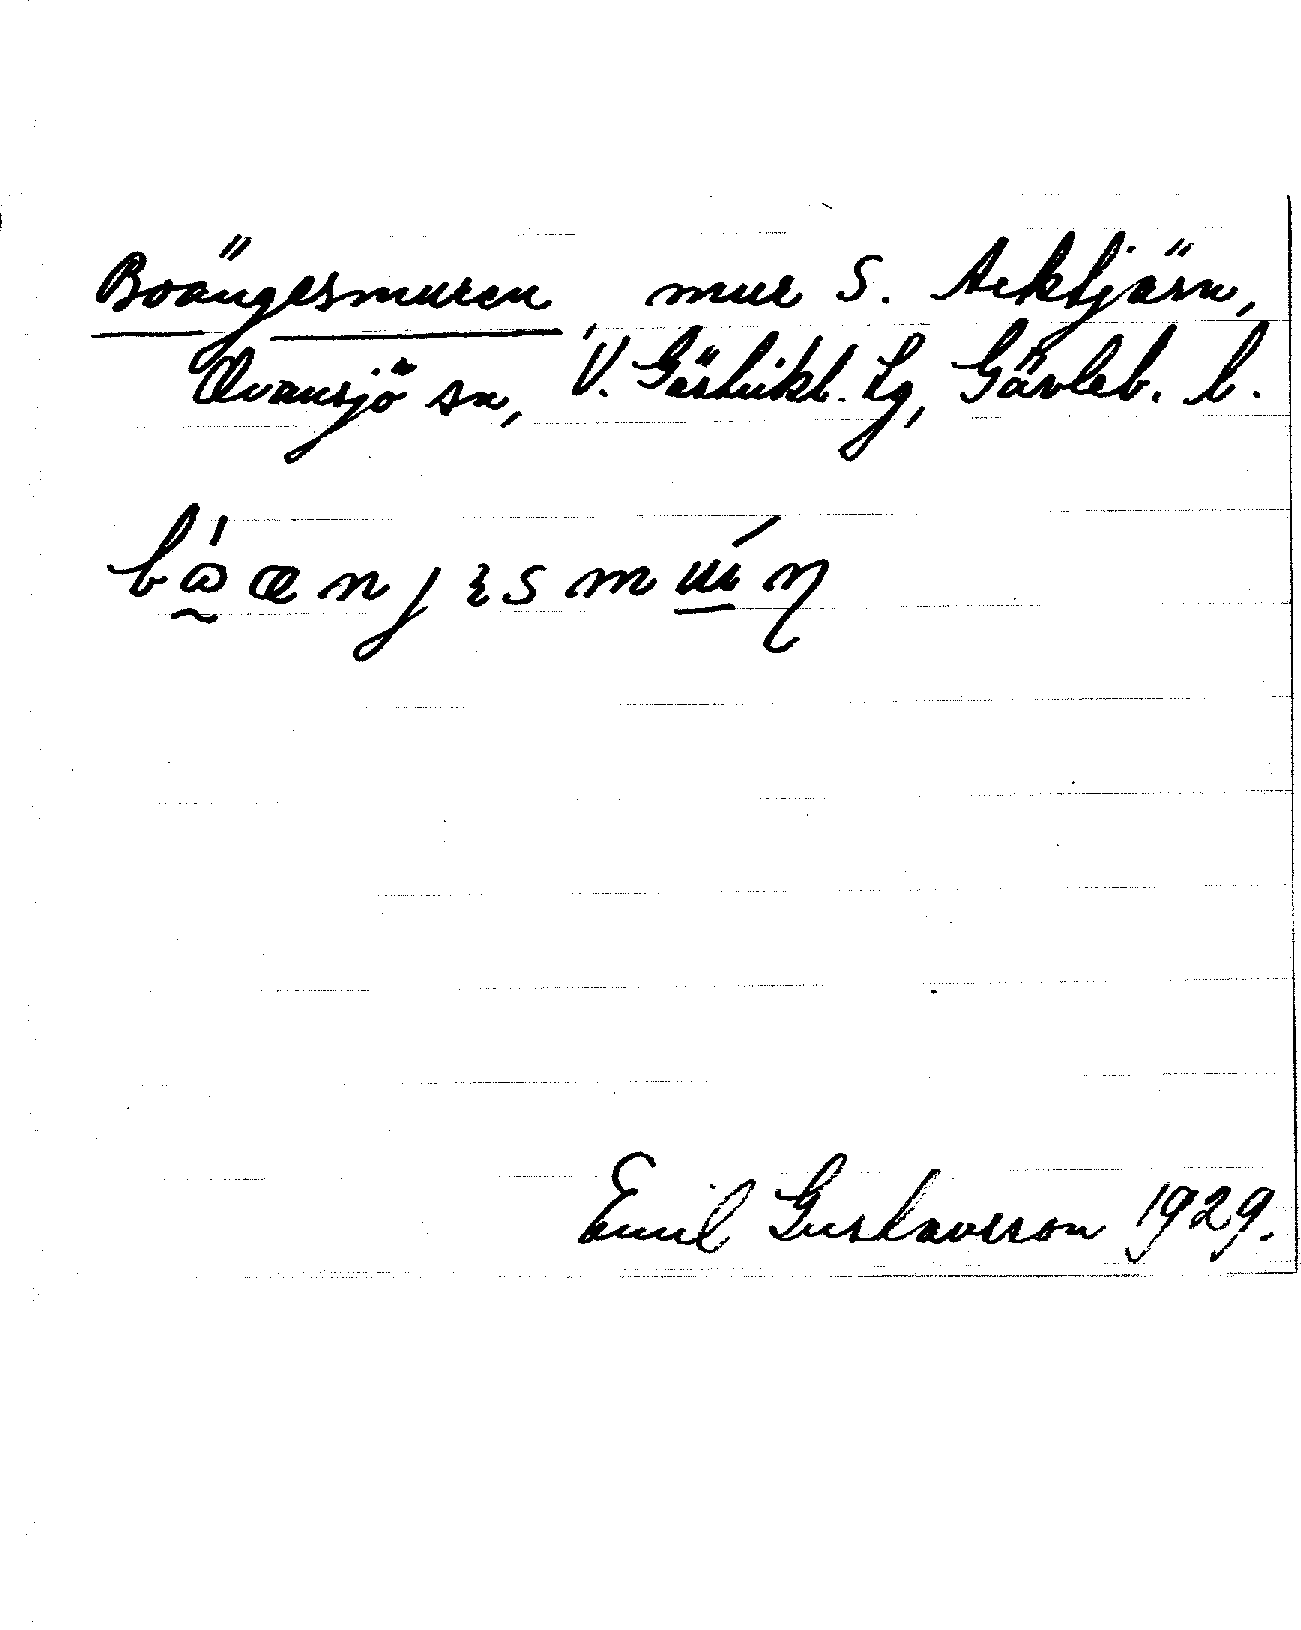 Boängesmuren, mur S. Acktjärn,
Ovansjö sn, V. Gästrikl. tg, Gävleb. l.
bòænjɛsmɯ́n
Emil Gustavsson 1929.